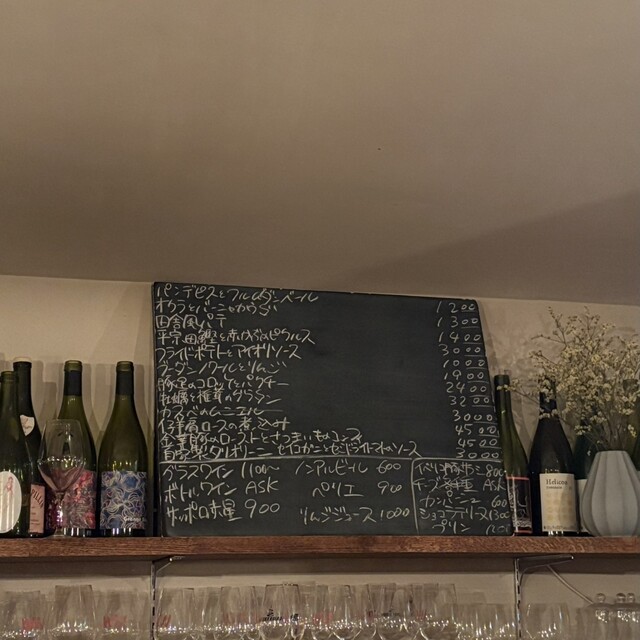 パンデピスとフルムダンベール 1200
オクラとバーニャカウダ 1300
田舎風パテ 1400
3000
フライドポテトとアイオリソース 1000
ブーダンノワールとりんご 1900
豚足のコロッケとパクチー 2400
牡蠣と椎茸のグラタン 3200
カスベのムニエル 3000
肩ロースの煮込み 4500
のローストとさつまいものコンフィ 4500
自家製タリオリーニ セイコガニとセミドライトマトのソース 3000
グラスワイン 1100〜
ボトルワイン ASK
サッポロ赤星 900
ノンアルビール 600
ペリエ 900
りんごジュース 1000
800
チーズ各種 ASK
カンパーニュ 600
ショコラテリーヌ
プリン